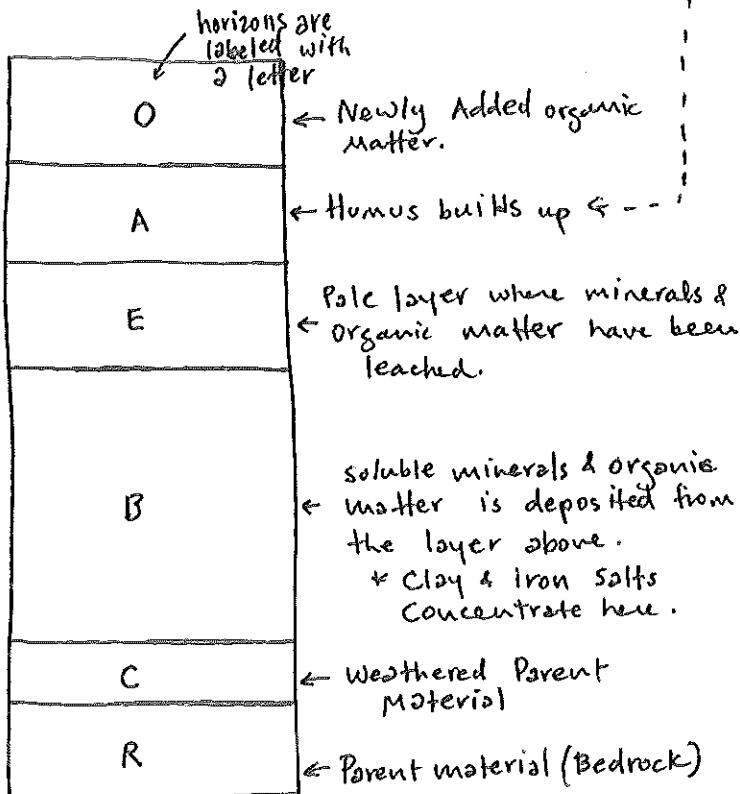 horizons are
labeled with
a letter
O
← Newly Added organic
Matter.
A
← Humus builds up ←
E
Pale layer where minerals &
← organic matter have been
leached.
B
soluble minerals & organic
← matter is deposited from
the layer above.
* Clay & iron Salts
Concentrate here.
C
← Weathered Parent
Material
R
← Parent material (Bedrock)